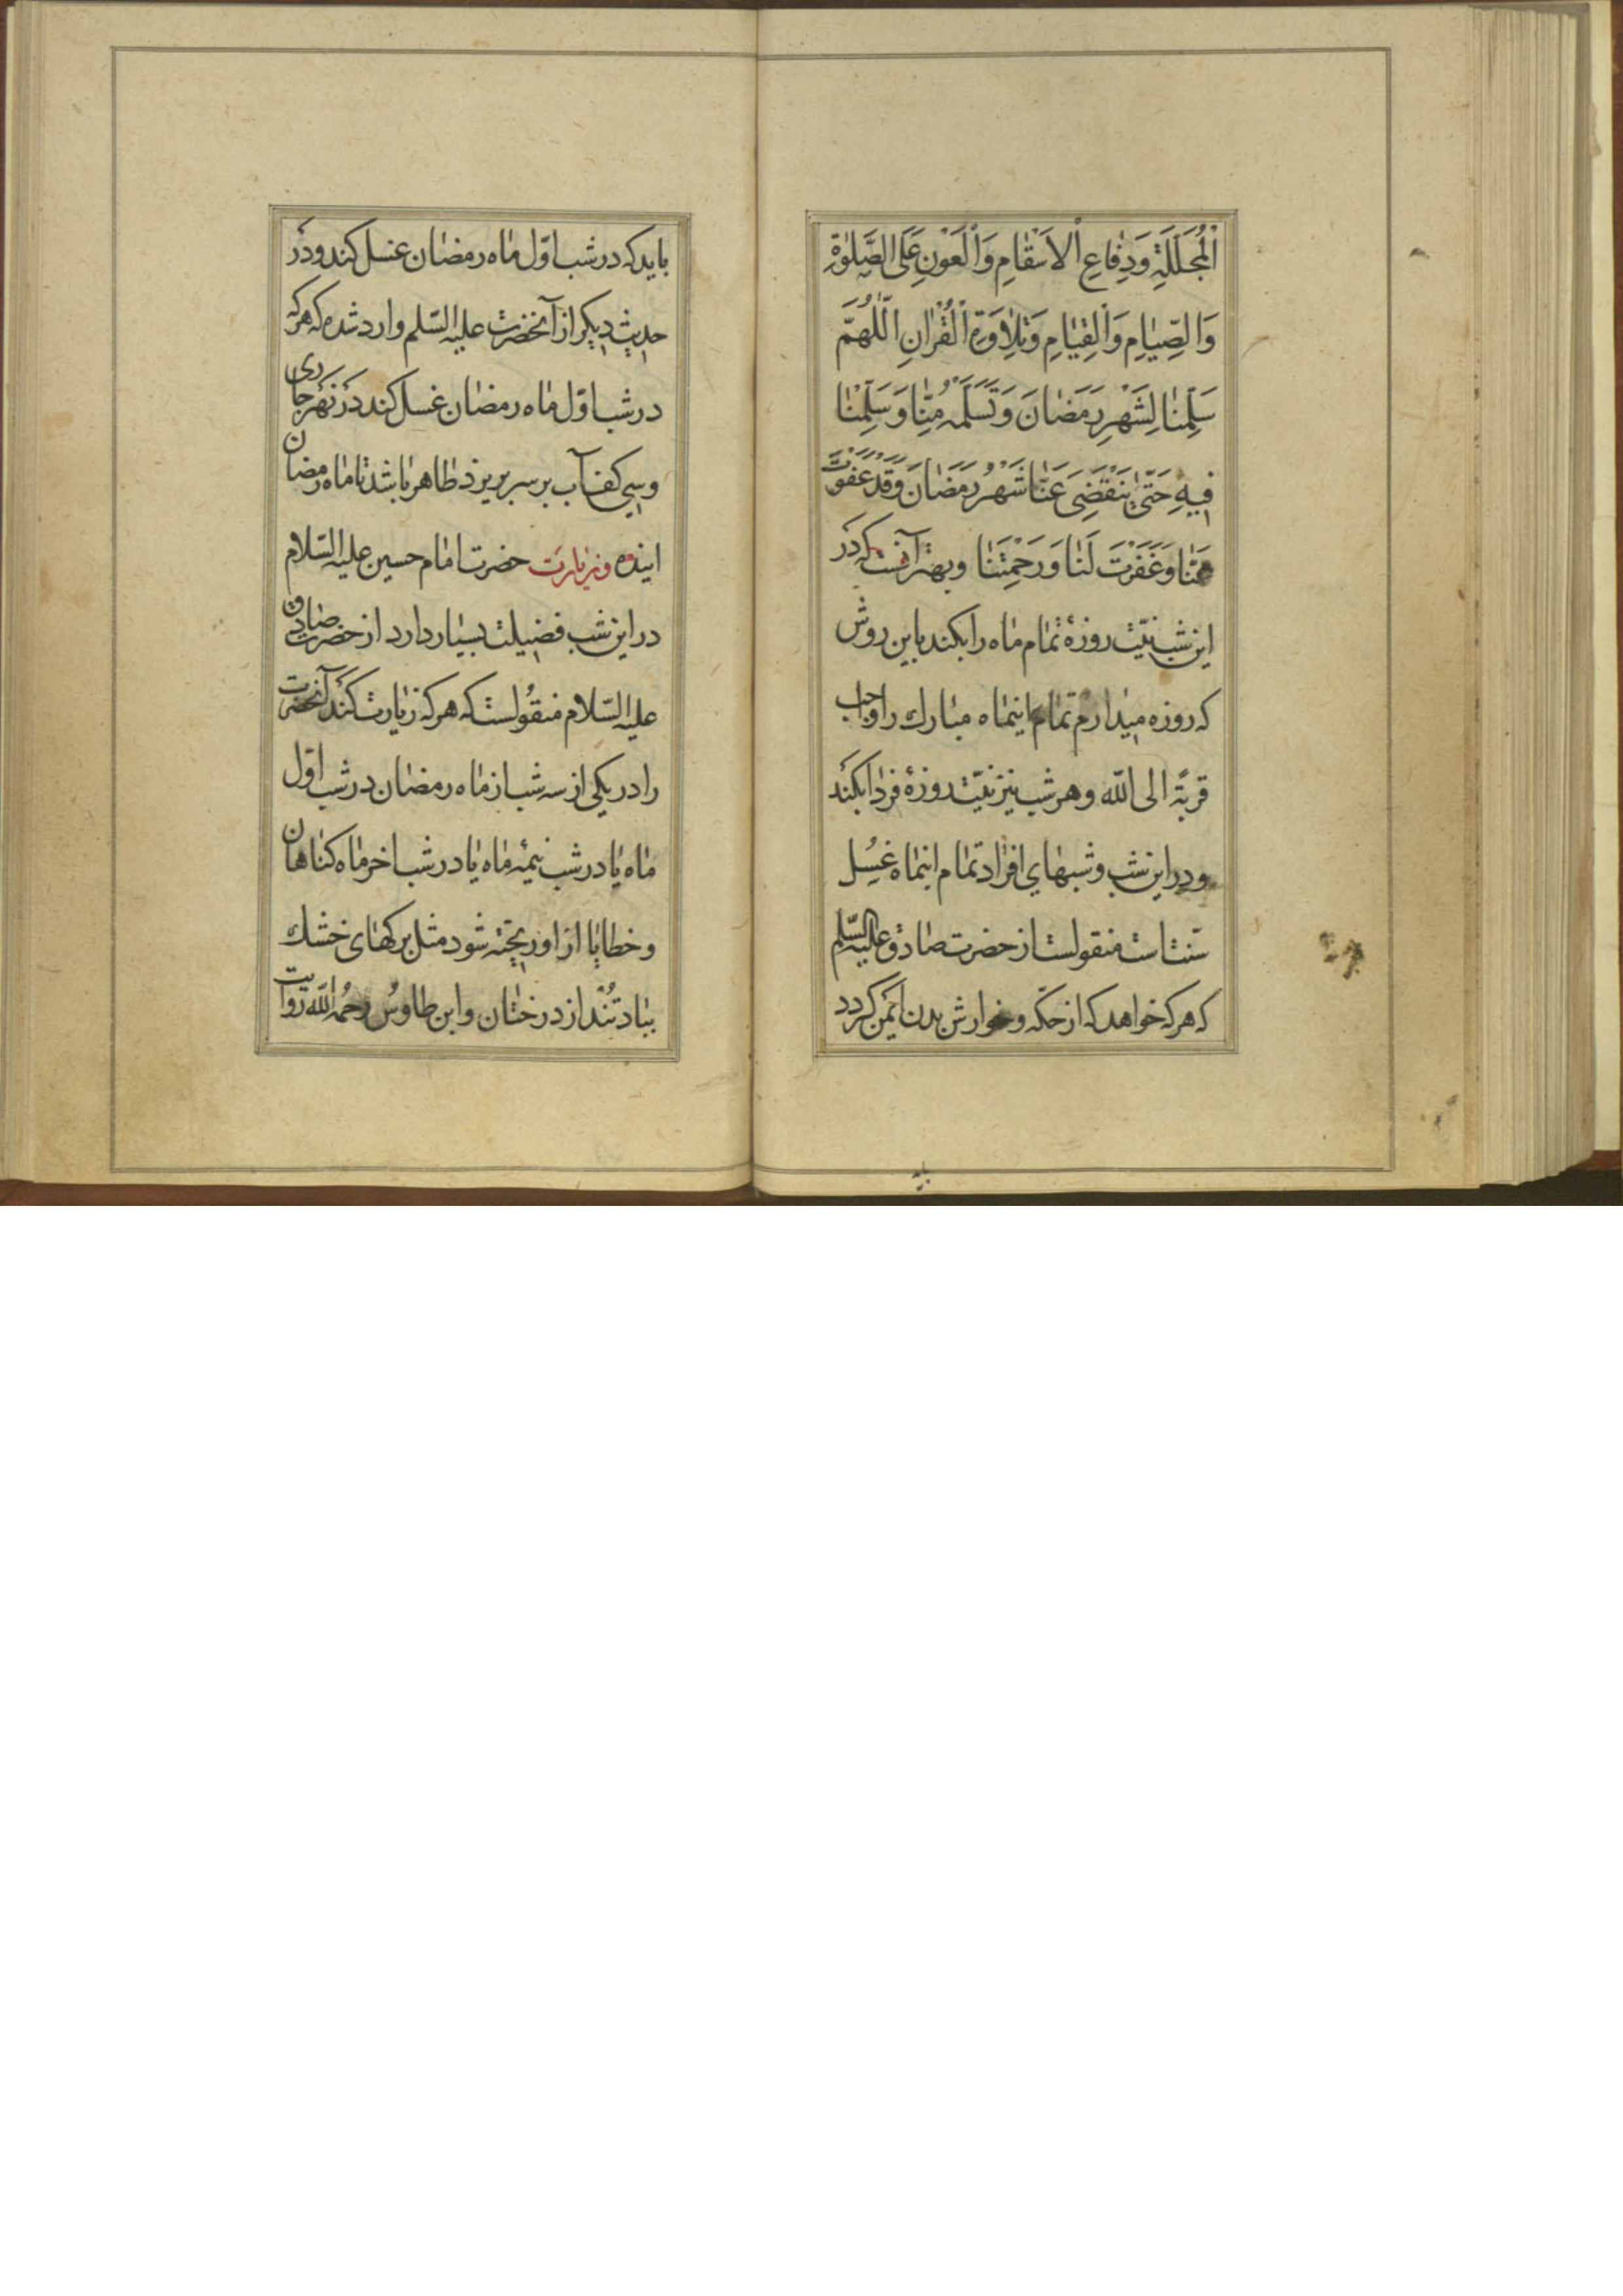 اْلمُجَلَّلَةِ وَدِفٰاعِ اْلاَسْقٰامِ وَاْلعَوْنِ عَلَى الصَّلٰوةِ
وَالصِّيٰامِ وَاْلقِيٰامِ وَتِلاٰوَةِ اْلقُرْاٰنِ اَللّٰهُمَّ
سَلِّمْنٰا لِشَهْرِ رَمَضٰانَ وَتَسَلَّمْهُ مِنّٰا وَسَلِّمْنٰا
فيهِ حَتّىٰ يَنْقَضِىَ عَنّٰا شَهْرُ رَمَضٰانَ وَقَدْ عَفَوْتَ
عَنّٰا وَغَفَرْتَ لَنٰا وَرَحِمْتَنٰا وبهتر آنست كه در
اين شب نيّت روزهٔ تمام ماه را بكند باين روش
كه روزه ميدارم تمام اينماه مبارك را واجب
قربةً الى اللّه وهر شب نيز نيّت روزهٔ فردا بكند
ودر اين شب وشبهاي افراد تمام اينماه غسل
سنّت است منقولست از حضرت صادق عليه السّلم
كه هر كه خواهد كه از حكّه وخوارش بدن ايمن كردد
بايد كه در شب اوّل ماه رمضان غسل كند ودر
حديث ديكر از آنحضرت عليه السّلم وارد شده كه هر كه
در شب اوّل ماه رمضان غسل كند در نهر جارى
وسي كف آب بر سر بريزد طاهر باشد تا ماه رمضان
اينده وزيارت حضرت امام حسين عليه السّلام
در اين شب فضيلت بسيار دارد از حضرت صادق
عليه السّلام منقولست كه هر كه زيارت كند آنحضرت
را در يكى از سه شب از ماه رمضان در شب اوّل
ماه يا در شب نيمهٔ ماه يا در شب اخر ماه كناهان
وخطايا از او ريخته شود مثل بركهاى خشك
بباد تُند از درختان وابن طاوس رحمه اللّه روايت
بايد